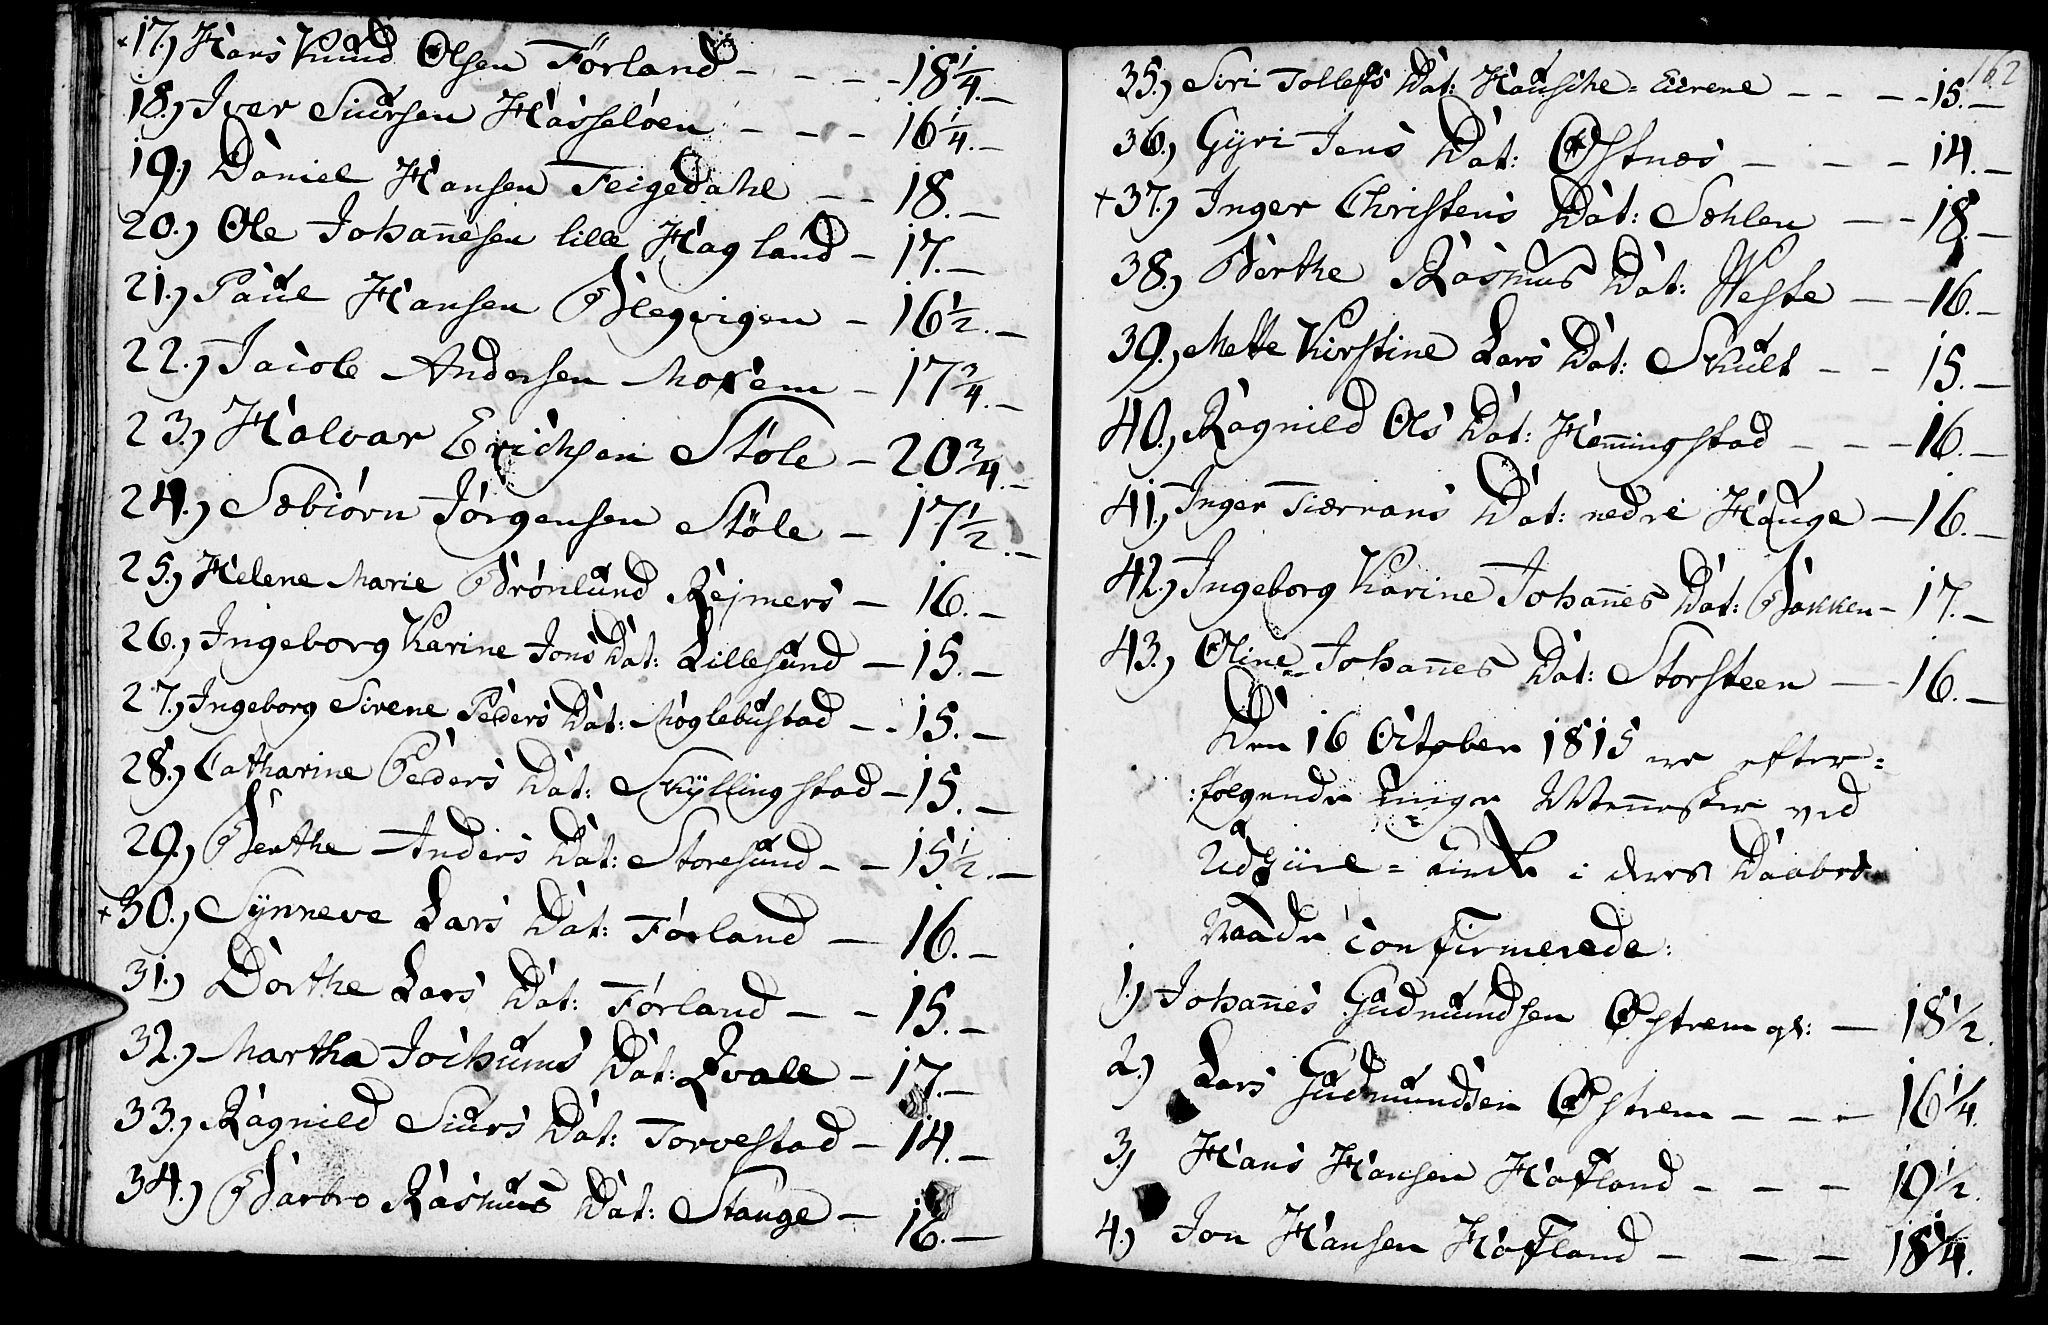 +17.) Hans Knud Olsen Førland - - - - 18 1/4. -
18.) Iver Siursen Hasseløen - - - 16 1/4. -
19.) Daniel Hansen Feigedahl - - 18. -
20.) Ole Johannesen lille Hagland - 17. -
21.) Paul Hansen Blegvigen - 16 1/2. -
22.) Jacob Andersen Moxem - 17 3/4. -
23.) Halvar Erichsen Støle - 20 3/4. -
24.) Sæbiørn Jørgensen Støle - 17 1/2. -
25.) Helene Marie Brønlund Rejmers - 16. -
26.) Ingeborg Karine Jons Dat: Lillesund - 15. -
27.) Ingeborg Sirene Peders Dat: Moglebustad - - 15. -
28.) Catharine Peders Dat: Skyllingstad - 15. -
29.) Berthe Anders Dat: Storesund - - 15 1/2. -
+30.) Synneve Lars Dat: Førland - 16. -
31.) Dorthe Lars Dat: Førland - - 15. -
32.) Martha Jochums Dat: Qvale - 17. -
33.) Ragnild Siurs Dat: Torvestad - 14. -
34.) Barbro Rasmus Dat: Stange - 16. -
162
35.) Siri Tollefs Dat: Hausche = Eierene - - - - 15. -
36.) Gyri Jens Dat: Østnes - - - 14. -
+37.) Inger Christens Dat: Sæhlen - - 18. -
38.) Berthe Rasmus Dat: Weste - - 16. -
39.) Mette Kirstine Lars Dat: Skult - - 15. -
40.) Ragnild Ols Dat: Hemmingstad - - - 16. -
41.) Inger Tiærrans Dat: nedre Hauge - 16. -
42.) Ingeborg Karine Johannes Dat: Bakken - 17. -
43.) Oline Johannes Dat: Storsteen - - 16. -
Den 16 October 1815 ere efter=
:følgende unge Mennesker ved
Udziire = Kirke i deres Daabes
Naade confirmerede:
1.) Johannes Gudmundsen Østrem - 18 1/2.
2.) Lars Gudmundsen Østrem - - - 16 1/4.
3.) Hans Hansen Hafland - - - 19 1/2.
4.) Jon Hansen Hafland - - - 18 1/4.